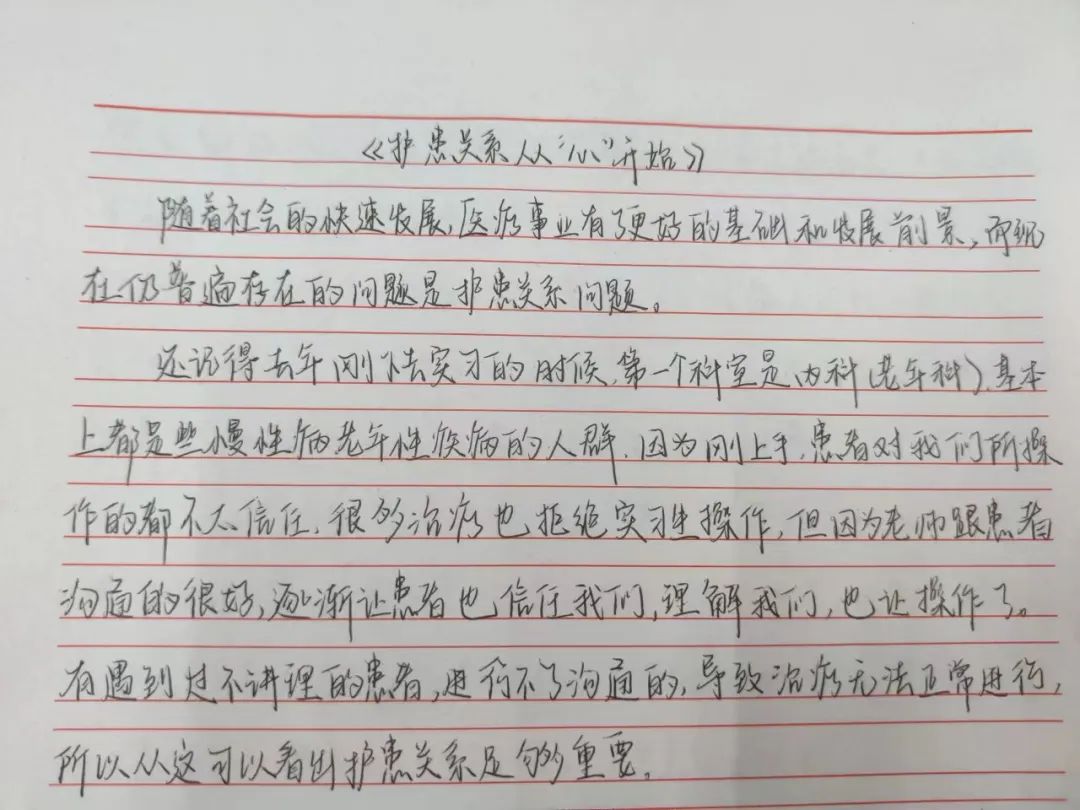 《护患关系从“心”开始》
随着社会的快速发展,医疗事业有了更好的基础和发展前景,而现
在仍普遍存在的问题是护患关系问题。
还记得去年刚下去实习的时候,第一个科室是内科(老年科),基本
上都是些慢性病老年性疾病的人群,因为刚上手,患者对我们所操
作的都不太信任,很多治疗也拒绝实习生操作,但因为老师跟患者
沟通的很好,逐渐让患者也信任我们,理解我们,也让操作了。
有遇到过不讲理的患者,进行不了沟通的,导致治疗无法正常进行,
所以从这可以看出护患关系足够重要。